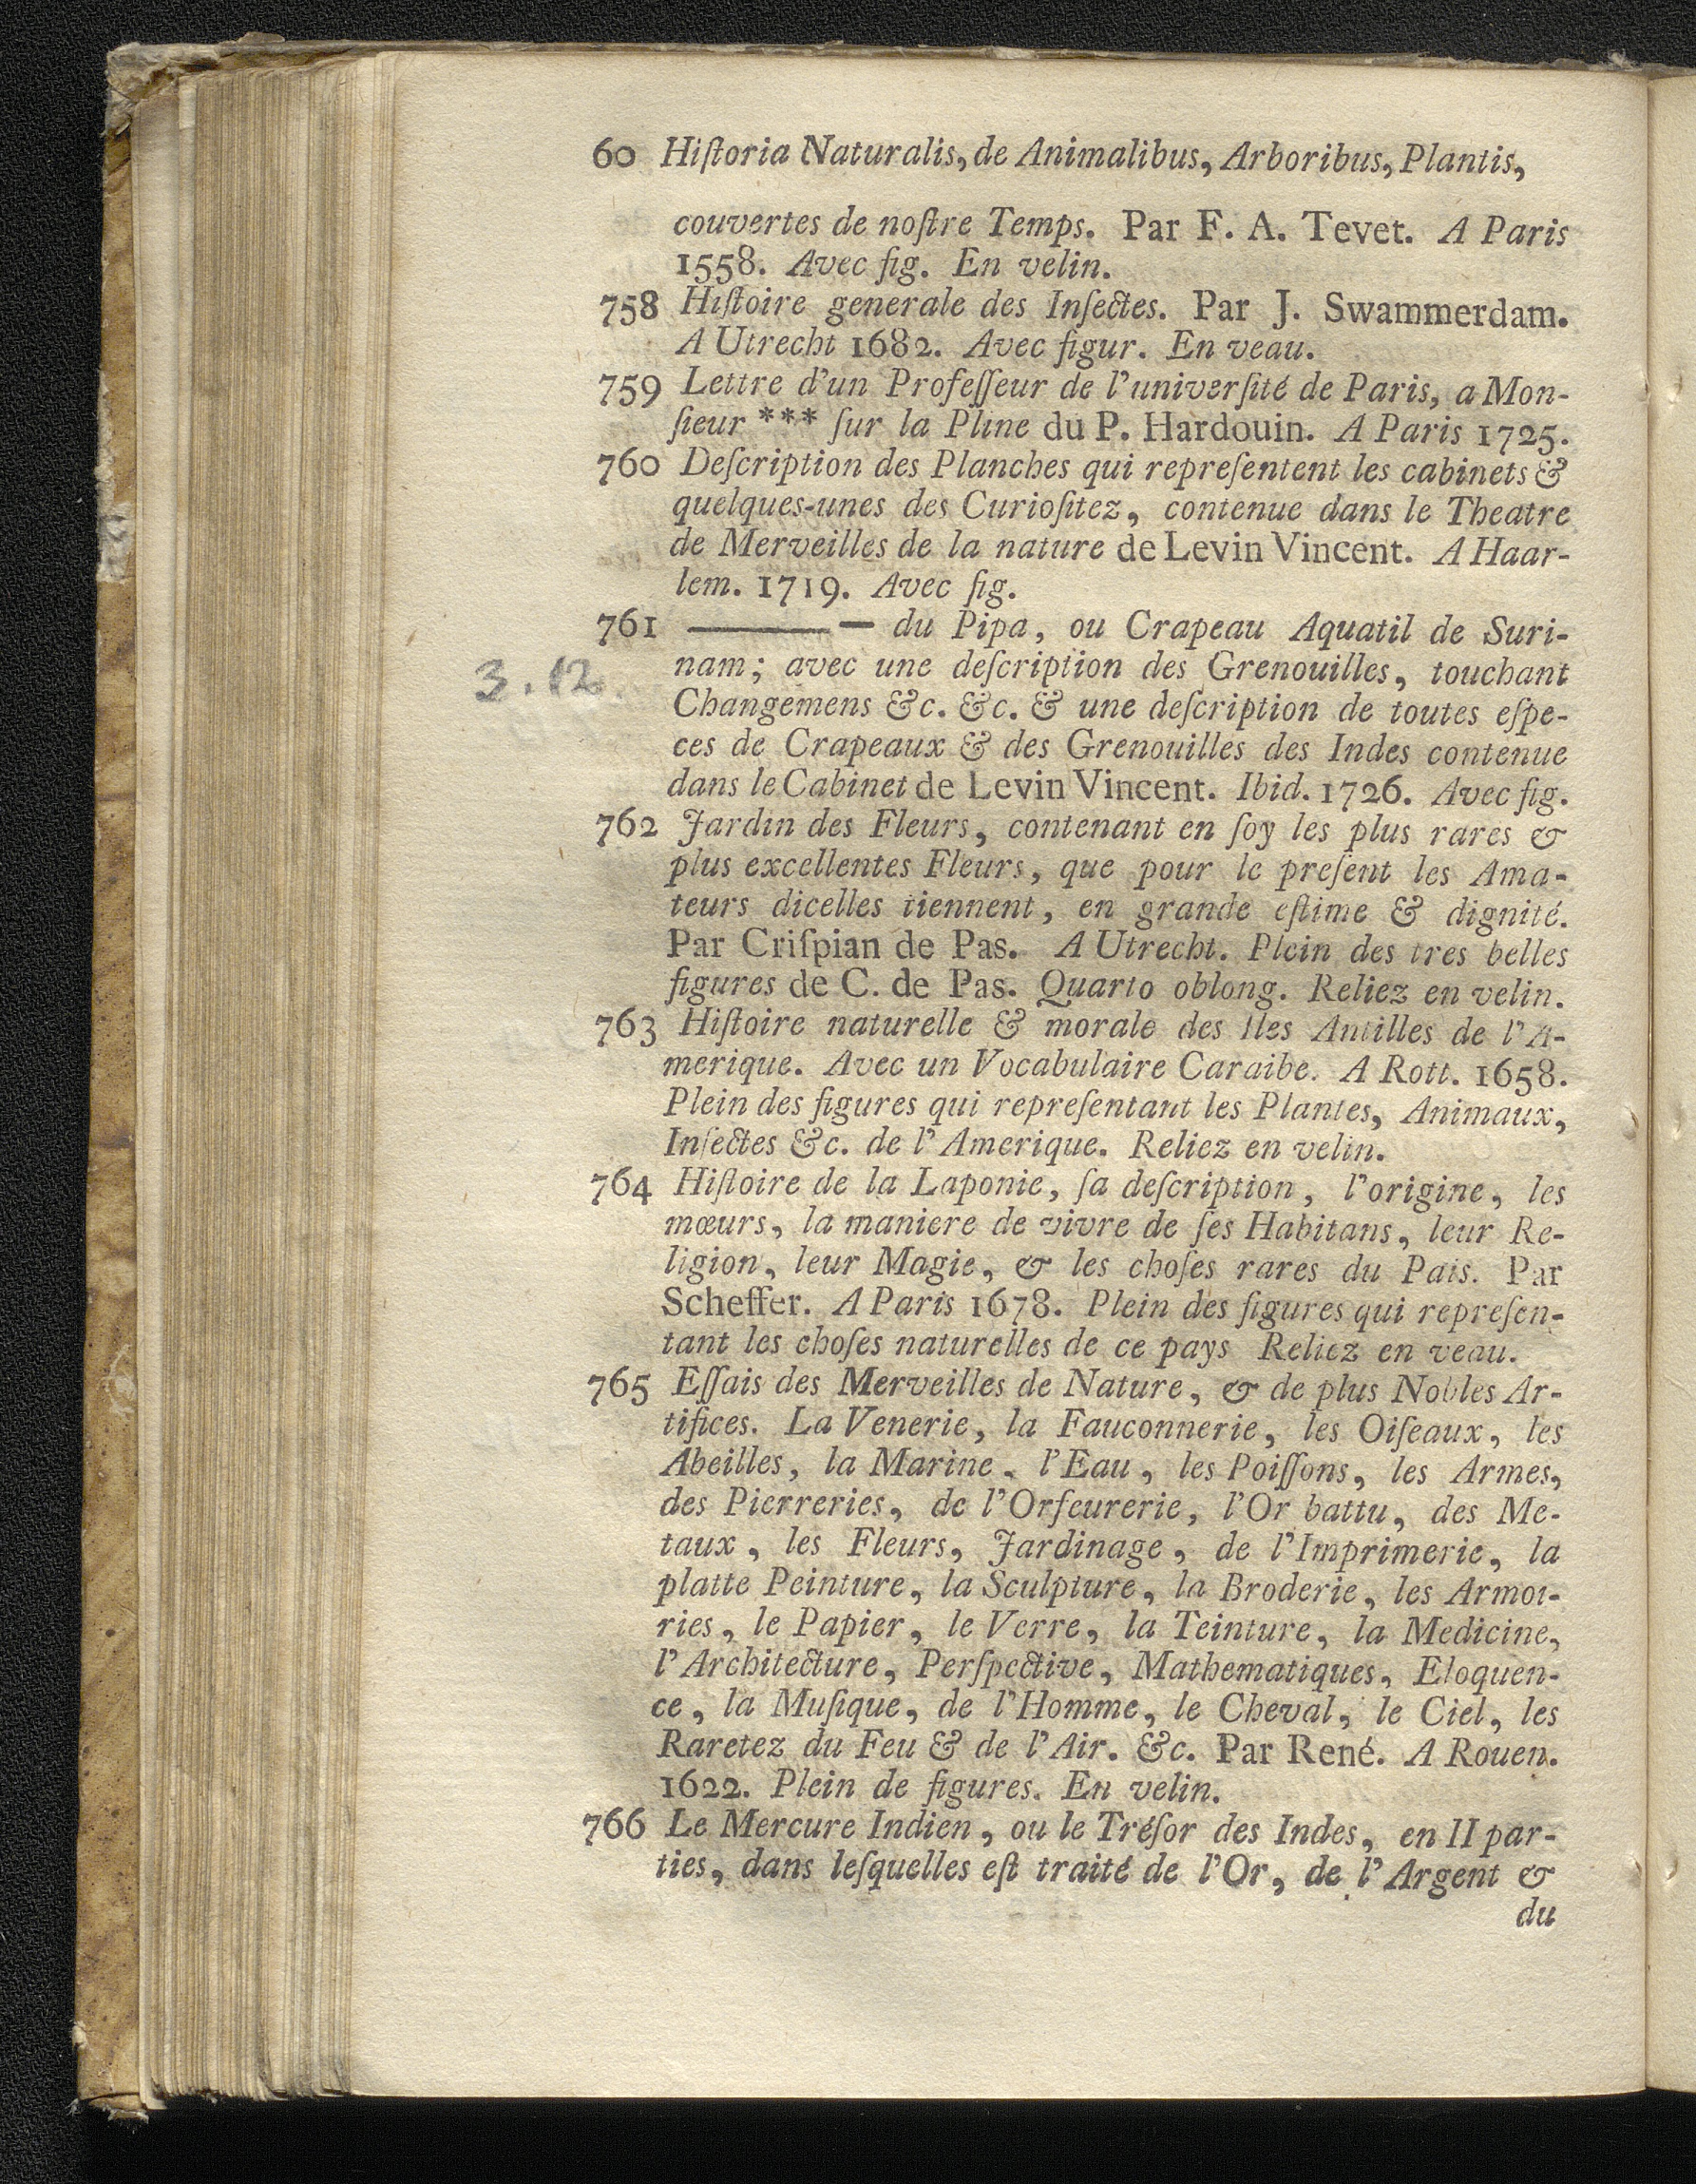 60 Hiſtoria Naturalis, de Animalibus, Arboribus, Plantis,
couvertes de noſtre Temps. Par F. A. Tevet. A Paris
1558. Avec fig. En velin.
758 Hiſtoire generale des Inſectes. Par J. Swammerdam.
A Utrecht 1682. Avec figur. En veau.
759 Lettre d'un Profeſſeur de l'univerſité de Paris, a Mon-
ſieur *** ſur la Pline du P. Hardouin. A Paris 1725.
760 Deſcription des Planches qui repreſentent les cabinets &
quelques-unes des Curioſitez, contenue dans le Theatre
de Merveilles de la nature de Levin Vincent. A Haar-
lem. 1719. Avec fig.
761 ——— — du Pipa, ou Crapeau Aquatil de Suri-
3.12.
nam; avec une deſcription des Grenouilles, touchant
Changemens &c. &c. & une deſcription de toutes eſpe-
ces de Crapeaux & des Grenouilles des Indes contenue
dans le Cabinet de Levin Vincent. Ibid. 1726. Avec fig.
762 Jardin des Fleurs, contenant en ſoy les plus rares &
plus excellentes Fleurs, que pour le preſent les Ama-
teurs dicelles tiennent, en grande eſtime & dignité.
Par Criſpian de Pas. A Utrecht. Plein des tres belles
figures de C. de Pas. Quarto oblong. Reliez en velin.
763 Hiſtoire naturelle & morale des Iles Antilles de l'A-
merique. Avec un Vocabulaire Caraibe. A Rott. 1658.
Plein des figures qui repreſentant les Plantes, Animaux,
Inſectes &c. de l'Amerique. Reliez en velin.
764 Hiſtoire de la Laponie, ſa deſcription, l'origine, les
mœurs, la maniere de vivre de ſes Habitans, leur Re-
ligion, leur Magie, & les choſes rares du Pais. Par
Scheffer. A Paris 1678. Plein des figures qui repreſen-
tant les choſes naturelles de ce pays Reliez en veau.
765 Eſſais des Merveilles de Nature, & de plus Nobles Ar-
tifices. La Venerie, la Fauconnerie, les Oiſeaux, les
Abeilles, la Marine, l'Eau, les Poiſſons, les Armes,
des Pierreries, de l'Orfeurerie, l'Or battu, des Me-
taux, les Fleurs, Jardinage, de l'Imprimerie, la
platte Peinture, la Sculpture, la Broderie, les Armoi-
ries, le Papier, le Verre, la Teinture, la Medicine,
l'Architecture, Perſpective, Mathematiques, Eloquen-
ce, la Muſique, de l'Homme, le Cheval, le Ciel, les
Raretez du Feu & de l'Air. &c. Par René. A Rouen.
1622. Plein de figures. En velin.
766 Le Mercure Indien, ou le Tréſor des Indes, en II par-
ties, dans leſquelles eſt traité de l'Or, de l'Argent &
du